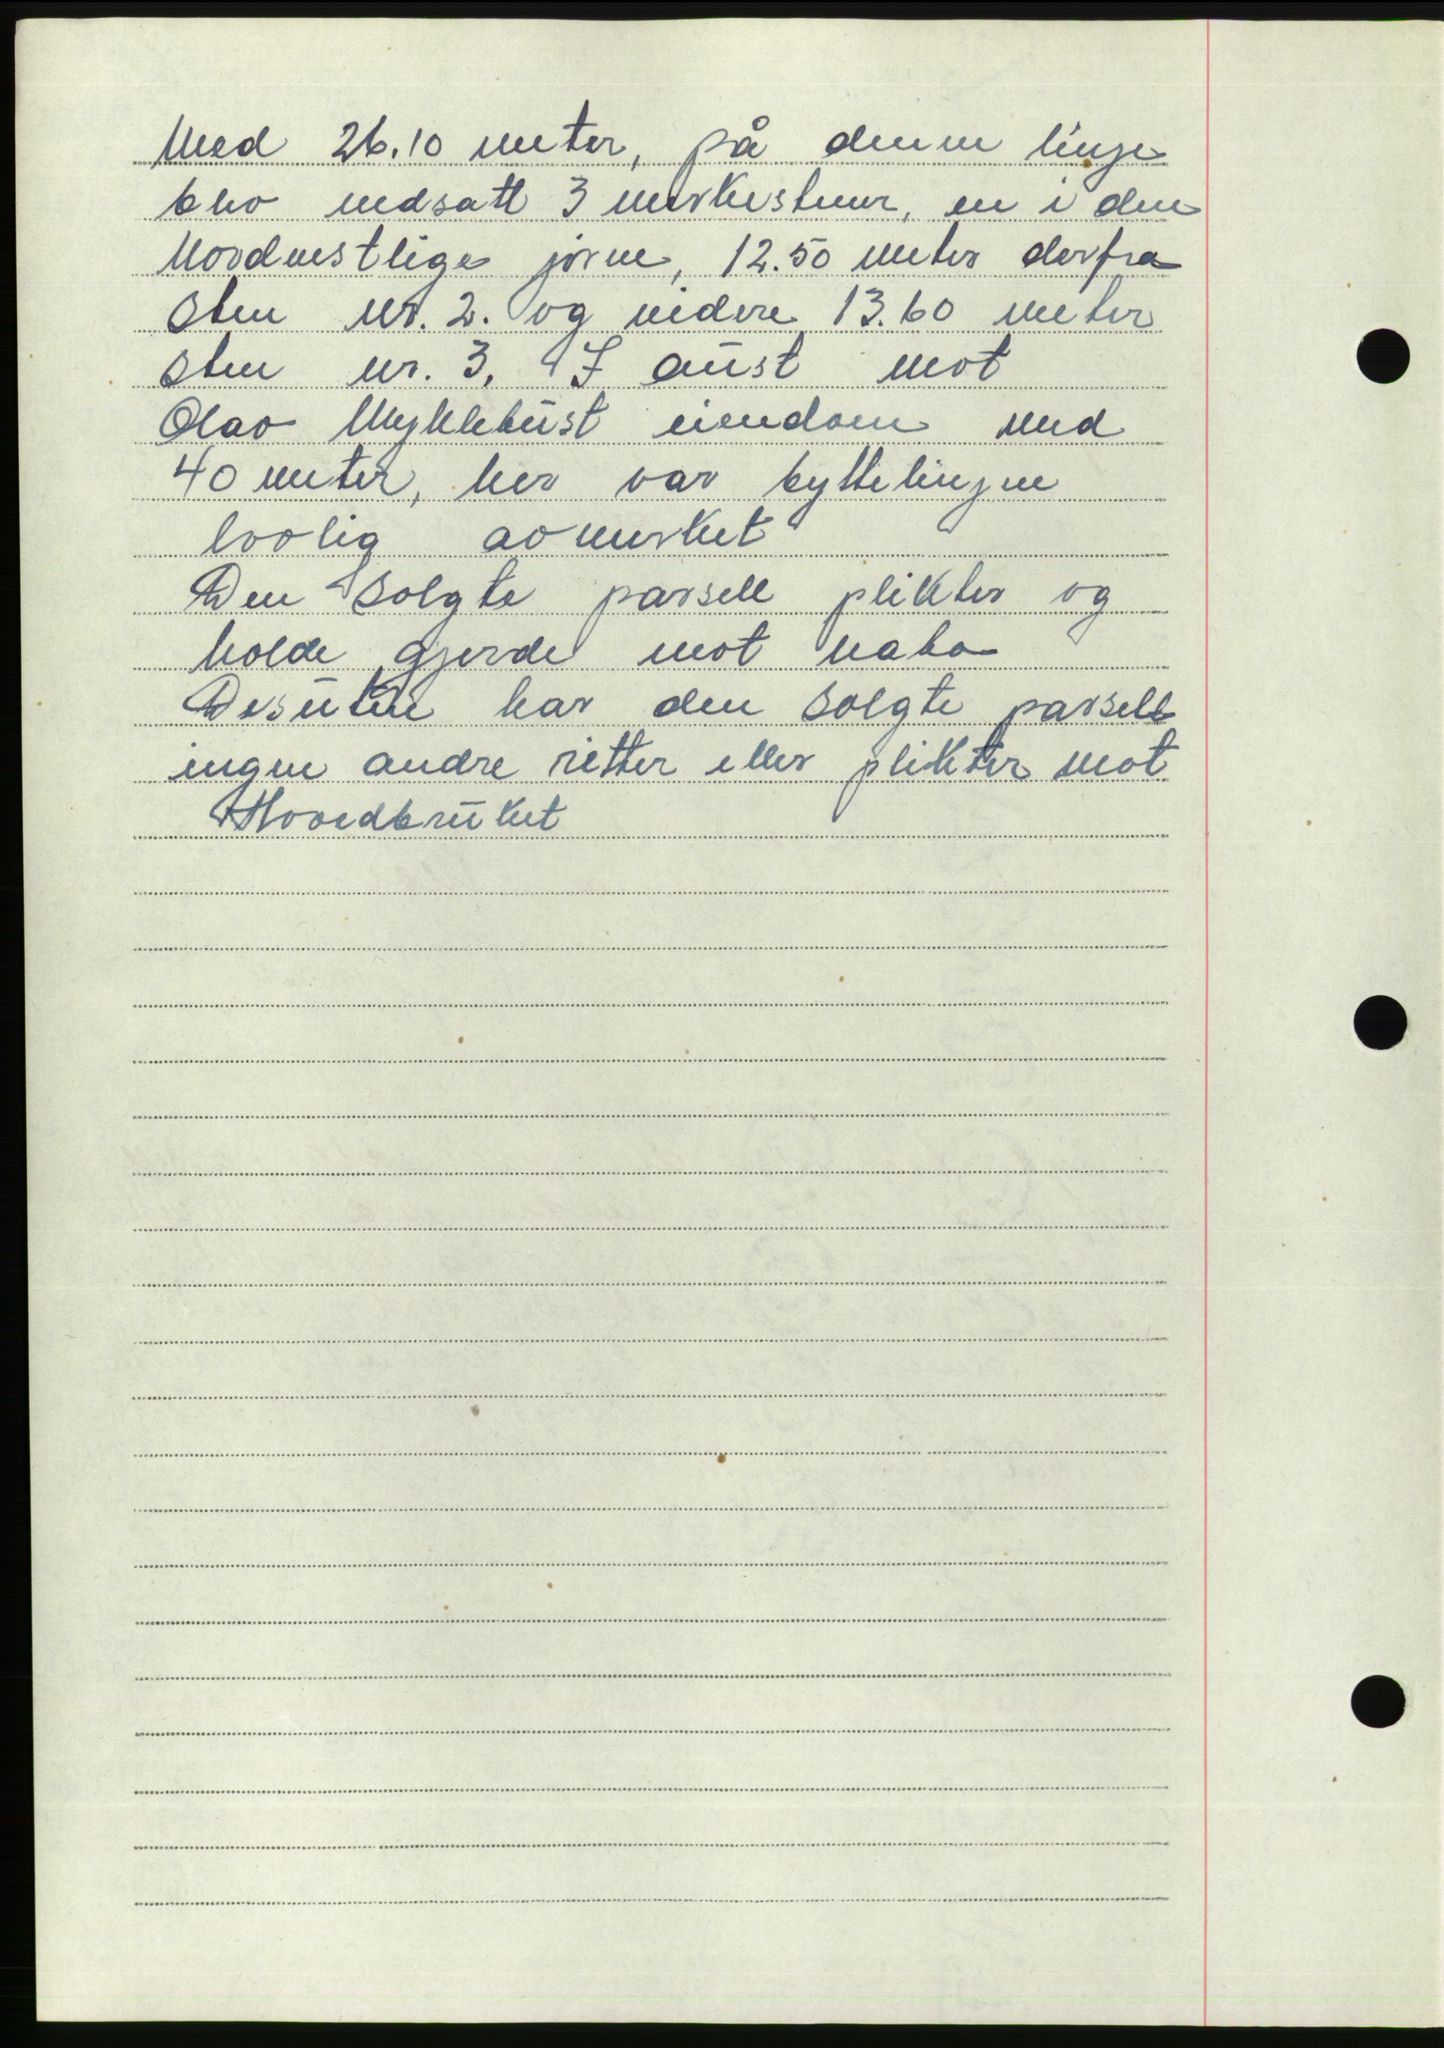 Med 26.10 meter, på denne linje
blev nedsatt 3 merkestener, en i den
Nordvestlige jörne, 12.50 meter derfra
Sten nr. 2. og videre 13.60 meter
Sten nr. 3. I aust mot
Olav Myklebust eiendom med
40 meter, her var byttelinjen
lovlig avmerket
Den Solgte parsell plikter og
holde gjerde mot nabo
Desuten har den Solgte parsell
ingen andre retter eller plikter mot
Hovedbruket